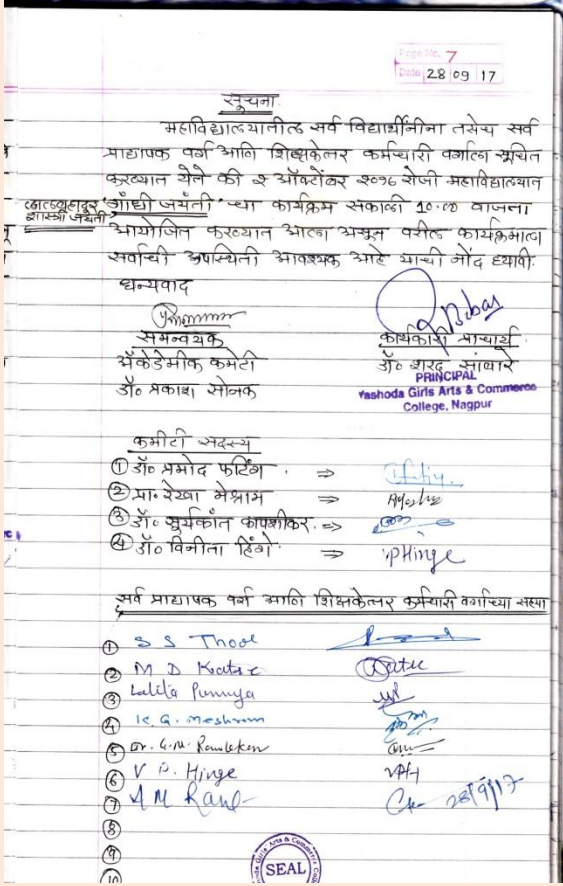 Page No. 7
Date 28 09 17
सूचना.
महाविद्यालयातील सर्व विद्यार्थीनींना तसेच सर्व
प्राध्यापक वर्ग आणि शिक्षकेत्तर कर्मचारी वर्गाला सूचित
करण्यात येते की २ ऑक्टोंबर २०१७ रोजी महाविद्यालयात
लालबहादूर शास्त्री जयंती
'गाँधी जयंती' चा कार्यक्रम सकाळी 10.00 वाजता
आयोजित करण्यात आला असून वरील कार्यक्रमाला
सर्वांची उपस्थिती आवश्यक आहे याची नोंद घ्यावी.
धन्यवाद
समन्वयक
कार्यकारी प्राचार्य
अॅकेडेमीक कमेटी
डॉ० शरद सांबारे
PRINCIPAL
डॉ० प्रकाश सोनक
Yashoda Girls Arts & Commerce
College, Nagpur
कमीटी सदस्य
① डॉ० प्रमोद फटिंग. ⇒
② प्रा. रेखा मेश्राम ⇒
③ डॉ० सूर्यकांत कापशीकर. ⇒
④ डॉ० विनीता हिंगे. ⇒ VPHinge
सर्व प्राध्यापक वर्ग आणि शिक्षकेत्तर कर्मचारी वर्गाच्या सह्या
① S S Thool
② M D Katre
③ Lalita Punnya
④ K. G. Meshram
⑤ Dr. G.N.
⑥ V P. Hinge VPH
⑦ A M Rane 28/9/17
⑧
⑨
⑩
Girls Arts & Commerce
SEAL